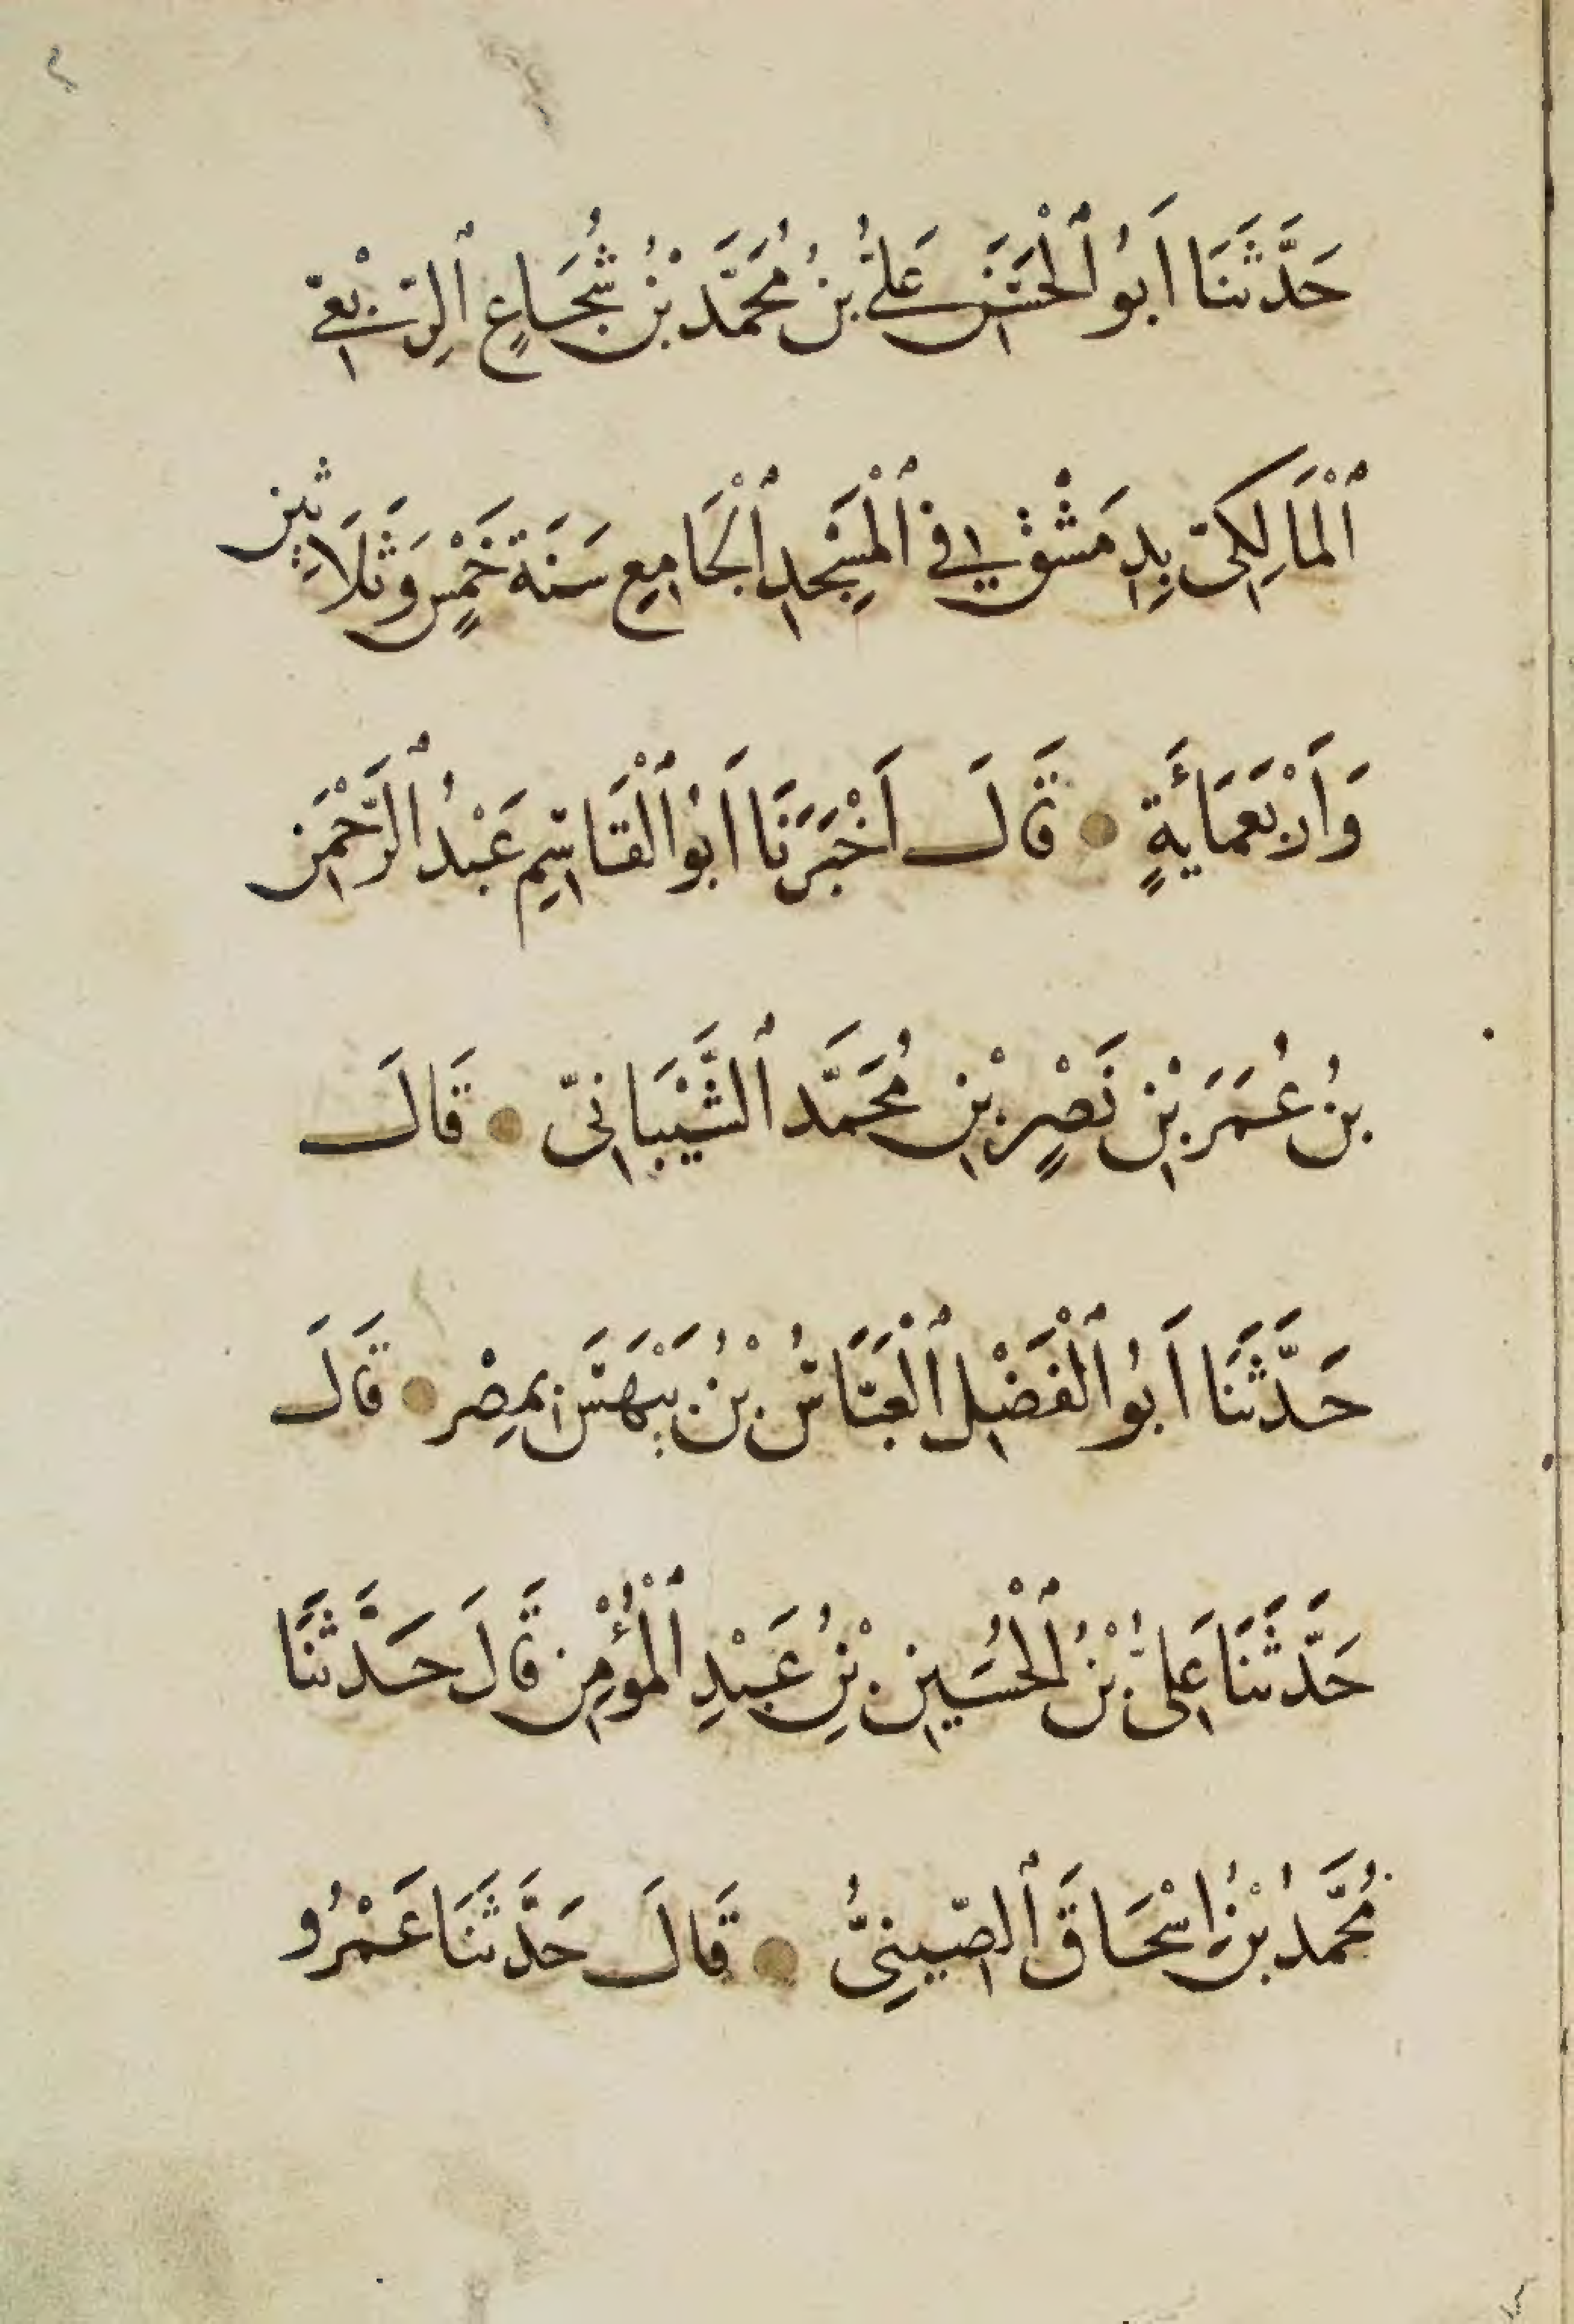 حَدَّثَنَا اَبُو ٱلْحَسَنِ عَلِيُّ بْنُ مُحَمَّدِ بْنِ شُجَاعٍ ٱلرَّبْعِيّ
ٱلْمَالِكِيّ بِدِمَشْقَ فِي ٱلْمَسْجِدِ ٱلْجَامِعِ سَنَةَ خَمْسٍ وَثَلَاثِين
وَاَرْبَعَمَائَةٍ قَالَ اَخْبَرَنَا اَبُو ٱلْقَاسِمِ عَبْدُ ٱلرَّحْمَنِ
بنُ عُمَرَ بْنِ نَصْرٍ بْنِ مُحَمَّد ٱلشَّيْبَانِيّ قَالَ
حَدَّثَنَا اَبُو ٱلْفَضْلِ ٱلْعَبَّاسُ بْنُ بَيْهَسَ بمِصْر قَالَ
حَدَّثَنَا عَلِيُّ بْنُ ٱلْحُسَيْنِ بْنُ عَبْدِ ٱلْمُؤْمِنِ قَالَ حَدَّثَنَا
مُحَمَّدُ بْنُ اِسْحَاقَ ٱلصِّينِيُّ قَالَ حَدَّثَنَا عَمْرُو